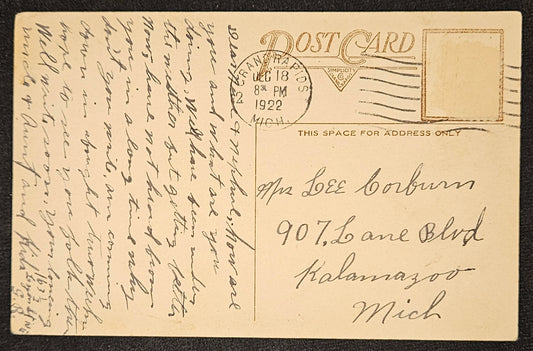 POST CARD
SIMPLICITY
GRAND RAPIDS
DEC 18
8 30 PM
1922
MICH.
2
THIS SPACE FOR ADDRESS ONLY
Mrs LEE Corburn
907, Lane Blvd
Kalamazoo
Mich
Dear Niece & Nephew, How are
you and what are you
doing, Well have been under
the weather but getting better
Now, have not heard from
you in a long time why
don't you write, am coming
down in about two weeks
hope to see you folks then
Will write soon, Your loving
Uncle & Aunt and